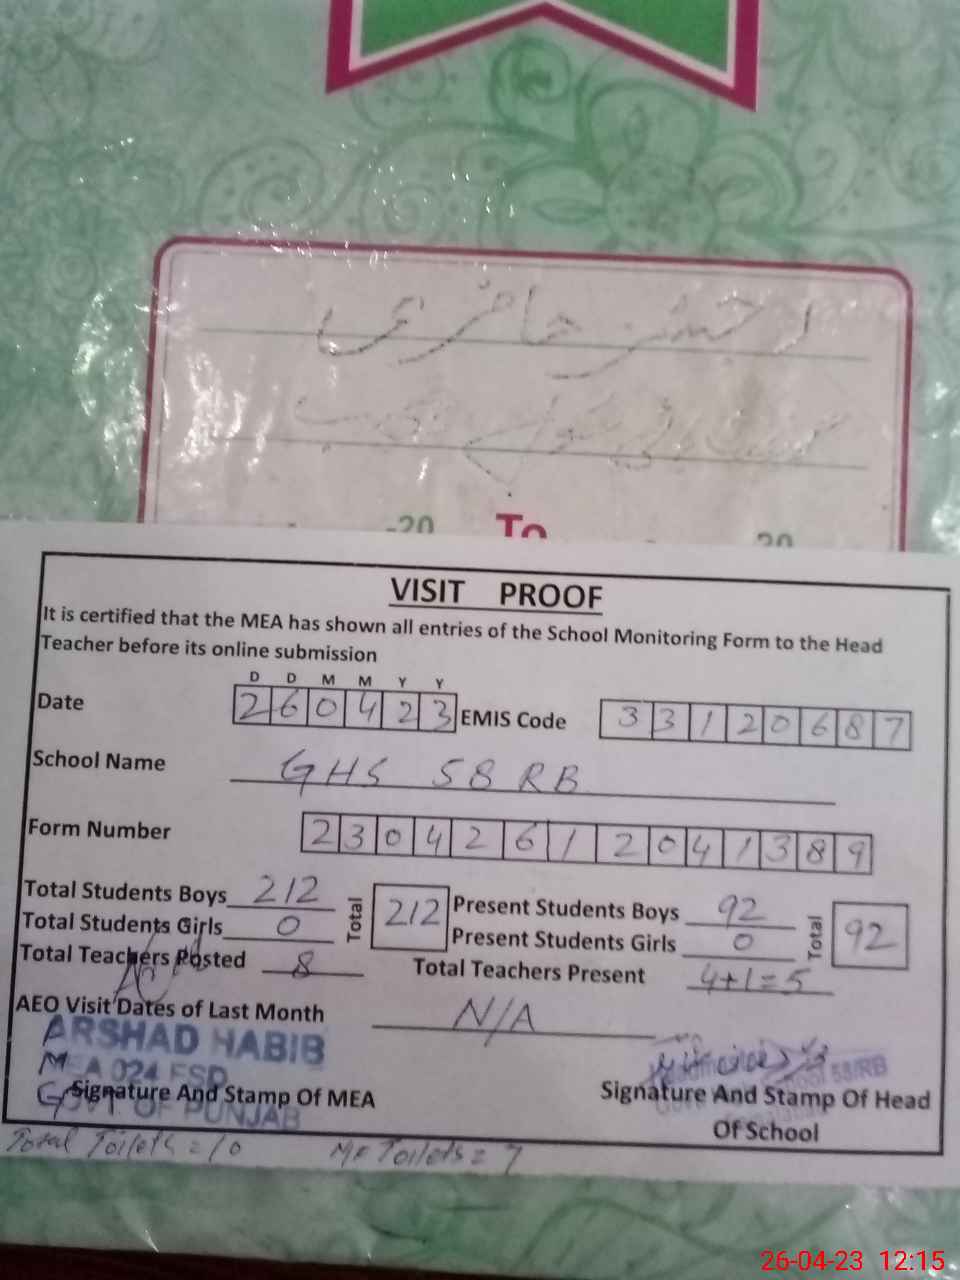 رجسٹر حاضری
-20 To 20
VISIT PROOF
It is certified that the MEA has shown all entries of the School Monitoring Form to the Head
Teacher before its online submission
D D M M Y Y
Date 2 6 0 4 2 3 EMIS Code 3 3 1 2 0 6 8 7
School Name GHS 58 RB
Form Number 2 3 0 4 2 6 1 2 0 4 1 3 8 9
Total Students Boys 212 Total 212 Present Students Boys 92 Total 92
Total Students Girls 0 Present Students Girls 0
Total Teachers Posted 8 Total Teachers Present 4+1=5
AEO Visit Dates of Last Month N/A
ARSHAD HABIB
MEA 024 FSD
GOVT OF PUNJAB
58/RB
Signature And Stamp Of MEA Signature And Stamp Of Head
Of School
Total Toilets = 10 Toilets = 7
26-04-23 12:15